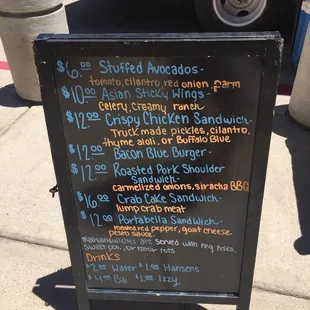 $6.00 Stuffed Avocados-
tomato, cilantro, red onion, parm
$10.00 Asian Sticky Wings-
Celery, creamy ranch
$12.00 Crispy Chicken Sandwich-
Truck made pickles, cilantro,
thyme aioli, or Buffalo Blue
$12.00 Bacon Blue Burger-
$12.00 Roasted Pork Shoulder
Sandwich-
carmelized onions, siracha BBQ
$16.00 Crab Cake Sandwich-
lump crab meat
$12.00 Portabella Sandwich-
roasted red pepper, goat cheese,
pesto sauce
sandwiches are served with
sweet pot, or tater tots
Drinks
$2.00 Water $1.00 Hansens
$4.00 Bai $1.00 Izzy